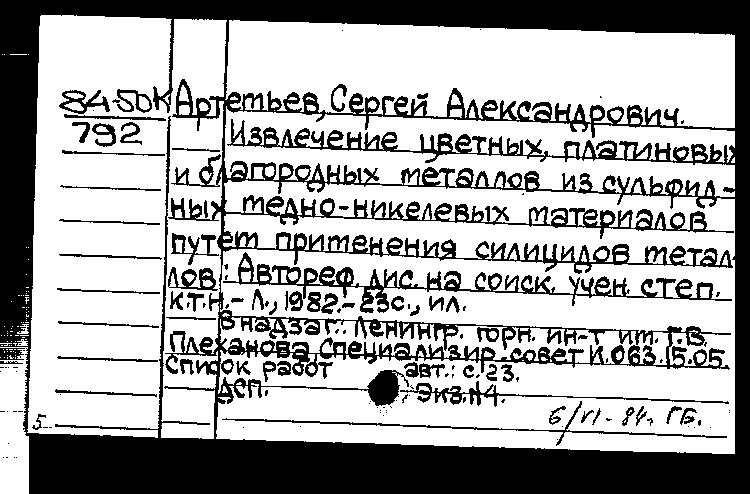 84-50К Артетьев, Сергей Александрович.
792 Извлечение цветных, платиновых
и благородных металлов из сульфид-
ных медно-никелевых материалов
путем применения силицидов метал-
лов: Автореф. дис. на соиск. учен. степ.
к.т.н. - Л., 1982. - 23с., ил.
В надзаг.: Ленингр. горн. ин-т им. Г.В.
Плеханова, Специализир. совет К.063.15.05.
Список работ авт.: с. 23.
ДСП. Экз.№4.
5 6/VI-84. ГБ.